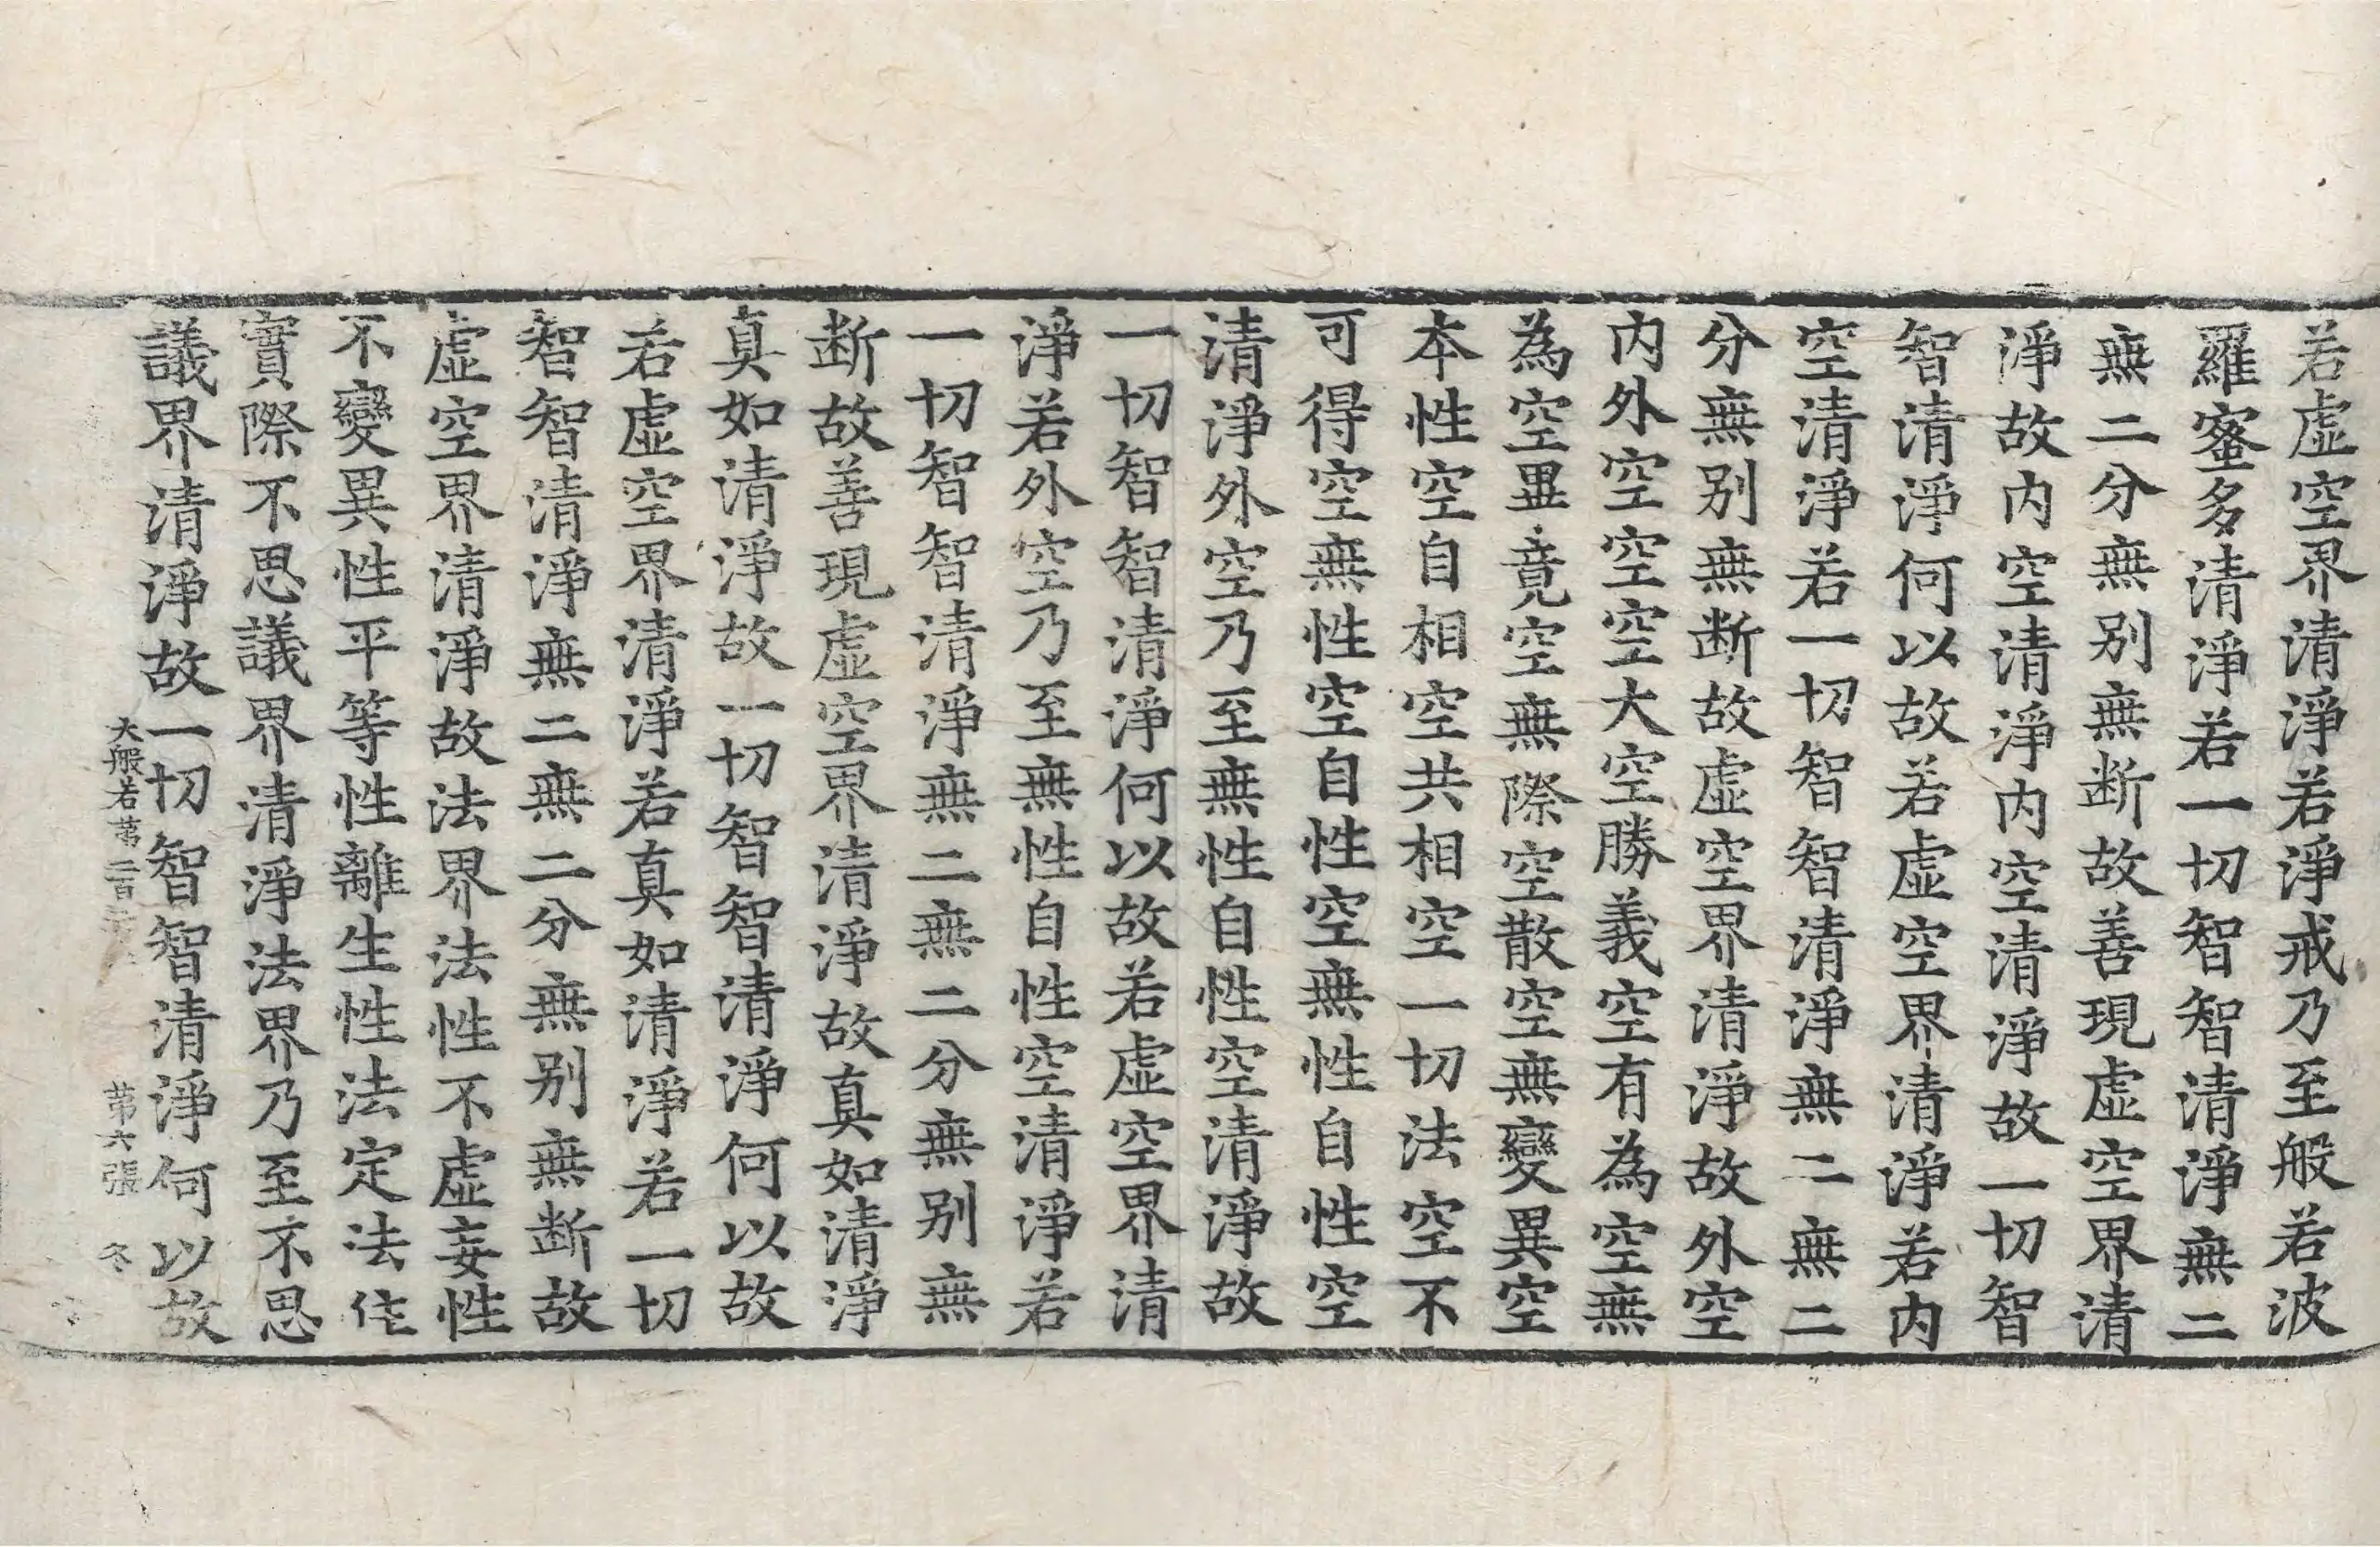 若虛空界清淨若淨戒乃至般若波
羅蜜多清淨若一切智智清淨無二
無二分無別無断故善現虛空界清
淨故内空清淨内空清淨故一切智
智清淨何以故若虛空界清淨若内
空清淨若一切智智清淨無二無二
分無別無断故虛空界清淨故外空
内外空空空大空勝義空有為空無
為空畢竟空無際空散空無變異空
本性空自相空共相空一切法空不
可得空無性空自性空無性自性空
清淨外空乃至無性自性空清淨故
一切智智清淨何以故若虛空界清
淨若外空乃至無性自性空清淨若
一切智智清淨無二無二分無別無
断故善現虛空界清淨故真如清淨
真如清淨故一切智智清淨何以故
若虛空界清淨若真如清淨若一切
智智清淨無二無二分無別無断故
虛空界清淨故法界法性不虛妄性
不變異性平等性離生性法定法住
實際不思議界清淨法界乃至不思
議界清淨故一切智智清淨何以故
大般若苐二百 苐六張 冬